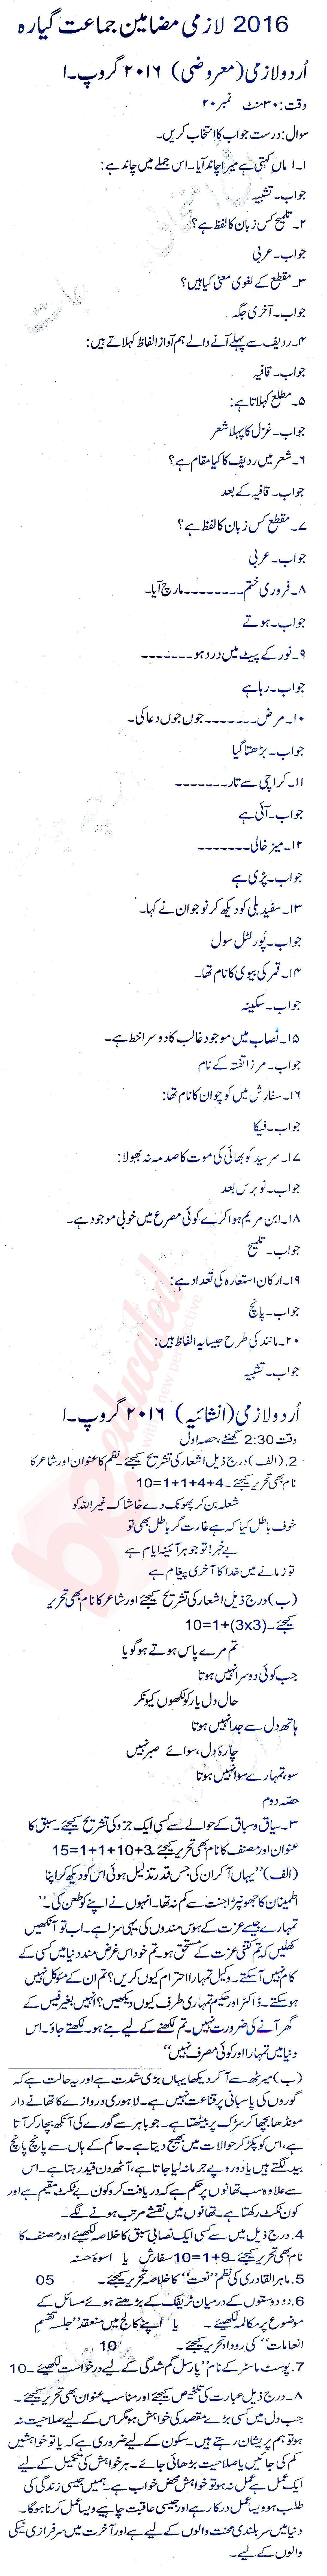 2016 لازمی مضامین جماعت گیارہ
اُردو لازمی (معروضی) ۲۰۱۶ گروپ۔I
وقت: ۳۰ منٹ نمبر ۲۰
سوال: درست جواب کا انتخاب کریں۔
۱۔ ماں کہتی ہے میرا چاند آیا۔ اس جملے میں چاند ہے:
جواب۔ تشبیہ
۲۔ تلمیح کس زبان کا لفظ ہے؟
جواب۔ عربی
۳۔ مقطع کے لغوی معنی کیا ہیں؟
جواب۔ آخری جگہ
۴۔ ردیف سے پہلے آنے والے ہم آواز الفاظ کہلاتے ہیں:
جواب۔ قافیہ
۵۔ مطلع کہلاتا ہے:
جواب۔ غزل کا پہلا شعر
۶۔ شعر میں ردیف کا کیا مقام ہے؟
جواب۔ قافیہ کے بعد
۷۔ مقطع کس زبان کا لفظ ہے؟
جواب۔ عربی
۸۔ فروری ختم۔۔۔۔۔۔۔۔مارچ آیا۔
جواب۔ ہوتے
۹۔ نور کے پیٹ میں درد ہو۔۔۔۔۔۔۔
جواب۔ رہا ہے
۱۰۔ مرض۔۔۔۔۔۔۔جوں جوں دعا کی۔
جواب۔ بڑھتا گیا
۱۱۔ کراچی سے تار۔۔۔۔۔۔۔
جواب۔ آئی ہے
۱۲۔ میز خالی۔۔۔۔۔۔۔
جواب۔ پڑی ہے
۱۳۔ سفید بلی کو دیکھ کر نوجوان نے کہا۔
جواب۔ پُور لٹل سول
۱۴۔ قمر کی بیوی کا نام تھا۔
جواب۔ سکینہ
۱۵۔ نصاب میں موجود غالب کا دوسرا خط ہے۔
جواب۔ مرزا تفتہ کے نام
۱۶۔ سفارش میں کوچوان کا نام تھا:
جواب۔ فیکا
۱۷۔ سرسید کو بھائی کی موت کا صدمہ نہ بھولا:
جواب۔ نو برس بعد
۱۸۔ ابن مریم ہوا کرے کوئی مصرع میں خوبی موجود ہے۔
جواب۔ تلمیح
۱۹۔ ارکان استعارہ کی تعداد ہے:
جواب۔ پانچ
۲۰۔ مانند کی طرح جیسا یہ الفاظ ہیں:
جواب۔ تشبیہ
اُردو لازمی (انشائیہ) ۲۰۱۶ گروپ۔I
وقت 2:30 گھنٹے، حصہ اول
2. (الف) درج ذیل اشعار کی تشریح کیجئے۔ نظم کا عنوان اور شاعر کا
نام بھی تحریر کیجئے۔ 4+4+1+1=10
شعلہ بن کر پھونک دے خاشاک غیر اللہ کو
خوف باطل کیا کہ ہے غارت گر باطل بھی تو
بے خبر! تو جوہر آئینہ ایام ہے
تو زمانے میں خدا کا آخری پیغام ہے
(ب) درج ذیل اشعار کی تشریح کیجئے اور شاعر کا نام بھی تحریر
کیجئے۔ (3x3)+1=10
تم مرے پاس ہوتے ہو گویا
جب کوئی دوسرا نہیں ہوتا
حال دل یار کو لکھوں کیونکر
ہاتھ دل سے جدا نہیں ہوتا
چارۂ دل، سوائے صبر نہیں
سو، تمہارے سوا نہیں ہوتا
حصہ دوم
۳۔ سیاق و سباق کے حوالے سے کسی ایک جزو کی تشریح کیجئے سبق کا
عنوان اور مصنف کا نام بھی تحریر کیجئے۔ 3+10+1+1=15
(الف) ”یہاں آکر ان کی جس قدر تذلیل ہوئی اس کو دیکھ کر اپنا
اطمینان کا جھونپڑا جنت سے کم نہ تھا۔ انہوں نے اپنے کو طعن کی۔”
تمہارے جیسے عزت کے ہوس مندوں کی یہی سزا ہے۔ اب تو آنکھیں
کھلیں کہ تم کتنی عزت کے مستحق ہو۔ تم خود اس غرض مند دنیا میں کسی کے
کام نہیں آ سکتے۔ وکیل تمہارا احترام کیوں کریں؟ تم ان کے موکل نہیں
ہو سکتے۔ ڈاکٹر اور حکیم تمہاری طرف کیوں دیکھیں؟ انہیں بغیر فیس کے
گھر آنے کی ضرورت نہیں۔ تم لکھنے کے لیے بنے ہو۔ لکھتے جاؤ۔ اس
دنیا میں تمہارا اور کوئی مصرف نہیں“
(ب) میرٹھ سے آ کر دیکھا یہاں بڑی شدت ہے اور یہ حالت ہے کہ
گوروں کی پاسبانی پر قناعت نہیں ہے۔ لاہوری دروازے کا تھانے دار
مونڈھا بچھا کر سڑک پر بیٹھتا ہے۔ جو باہر سے گورے کی آنکھ بچا کر آتا
ہے، اس کو پکڑ کر حوالات میں بھیج دیتا ہے۔ حاکم کے ہاں سے پانچ پانچ
بید لگتے ہیں یا دو روپے جرمانہ لیا جاتا ہے، آٹھ دن قید رہتا ہے۔ اس
سے علاوہ سب تھانوں پر حکم ہے کہ دریافت کرو کون بے ٹکٹ مقیم ہے اور
کون ٹکٹ رکھتا ہے۔ تھانوں میں نقشے مرتب ہونے لگے۔
4. درج ذیل میں سے کسی ایک نصابی سبق کا خلاصہ لکھیئے اور مصنف کا
نام بھی تحریر کیجئے۔ 9+1=10 سفارش یا اسوۂ حسنہ
5. ماہر القادری کی نظم ”نعت“ کا خلاصہ تحریر کیجئے۔ 05
6. دو دوستوں کے درمیان ٹریفک کے بڑھتے ہوئے مسائل کے
موضوع پر مکالمہ لکھیئے۔ یا اپنے کالج میں منعقد ”جلسہ تقسیم
انعامات“ کی روداد تحریر کیجئے۔ 10
7. پوسٹ ماسٹر کے نام ”پارسل گم شدگی کے لیے درخواست لکھیئے۔ 10
۸۔ درج ذیل عبارت کی تلخیص کیجئے اور مناسب عنوان بھی تحریر کیجئے۔
جب دل میں کسی بڑے مقصد کی خواہش ہو مگر اس کے لیے صلاحیت نہ
ہو تو ہم پریشان رہتے ہیں۔ سکون کے لیے ضروری ہے کہ یا تو خواہشیں
کم کی جائیں یا صلاحیت بڑھائی جائے۔ ہر خواہش کی تکمیل کے لیے
ایک عمل ہے عمل نہ ہو تو خواہش محض خواب ہے۔ ہمیں جیسی زندگی کی
طلب ہو ویسا عمل درکار ہے اور جیسی عاقبت چاہیے ویسا عمل کرنا ہو گا۔
دنیا میں سر بلندی محنت والوں کے لیے ہے اور آخرت میں سرفرازی نیکی
والوں کے لیے۔